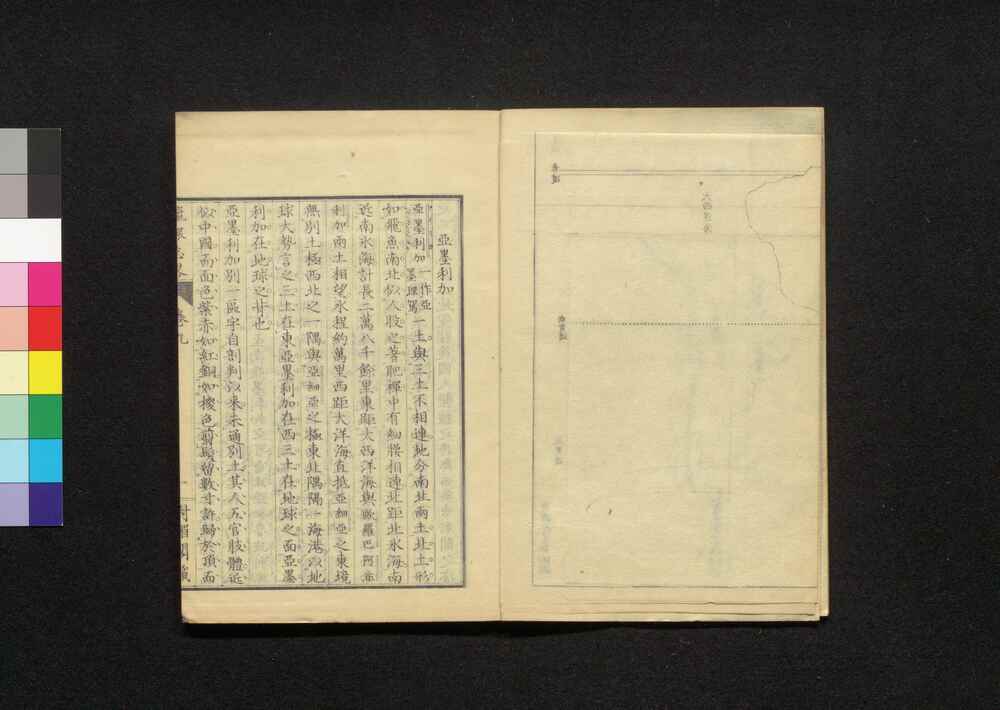 大西洋
亞墨利加
亞墨利加一作亞墨理駕一土與三土不相連地分南北兩土北土形
如飛魚南北似人股之著肥褌中有細腰相連北距北氷海南
近南氷海計長二萬八千餘里東距大西洋海與歐羅巴阿非
利加兩土相望水程約萬里西距大洋海直抵亞細亞之東境
無別土極西北之一隅與亞細亞之極東北隅隔一海港以地
球大勢言之三土在東亞墨利加在西三土在地球之面亞墨
利加在地球之背也
亞墨利加別一區宇自剖判以來未通別土其人五官肢體近
似中國而面色紫赤如紅銅如椶色剪髮留數寸許歸於頂而
瀛環志畧
卷九
一
對嵋閣藏